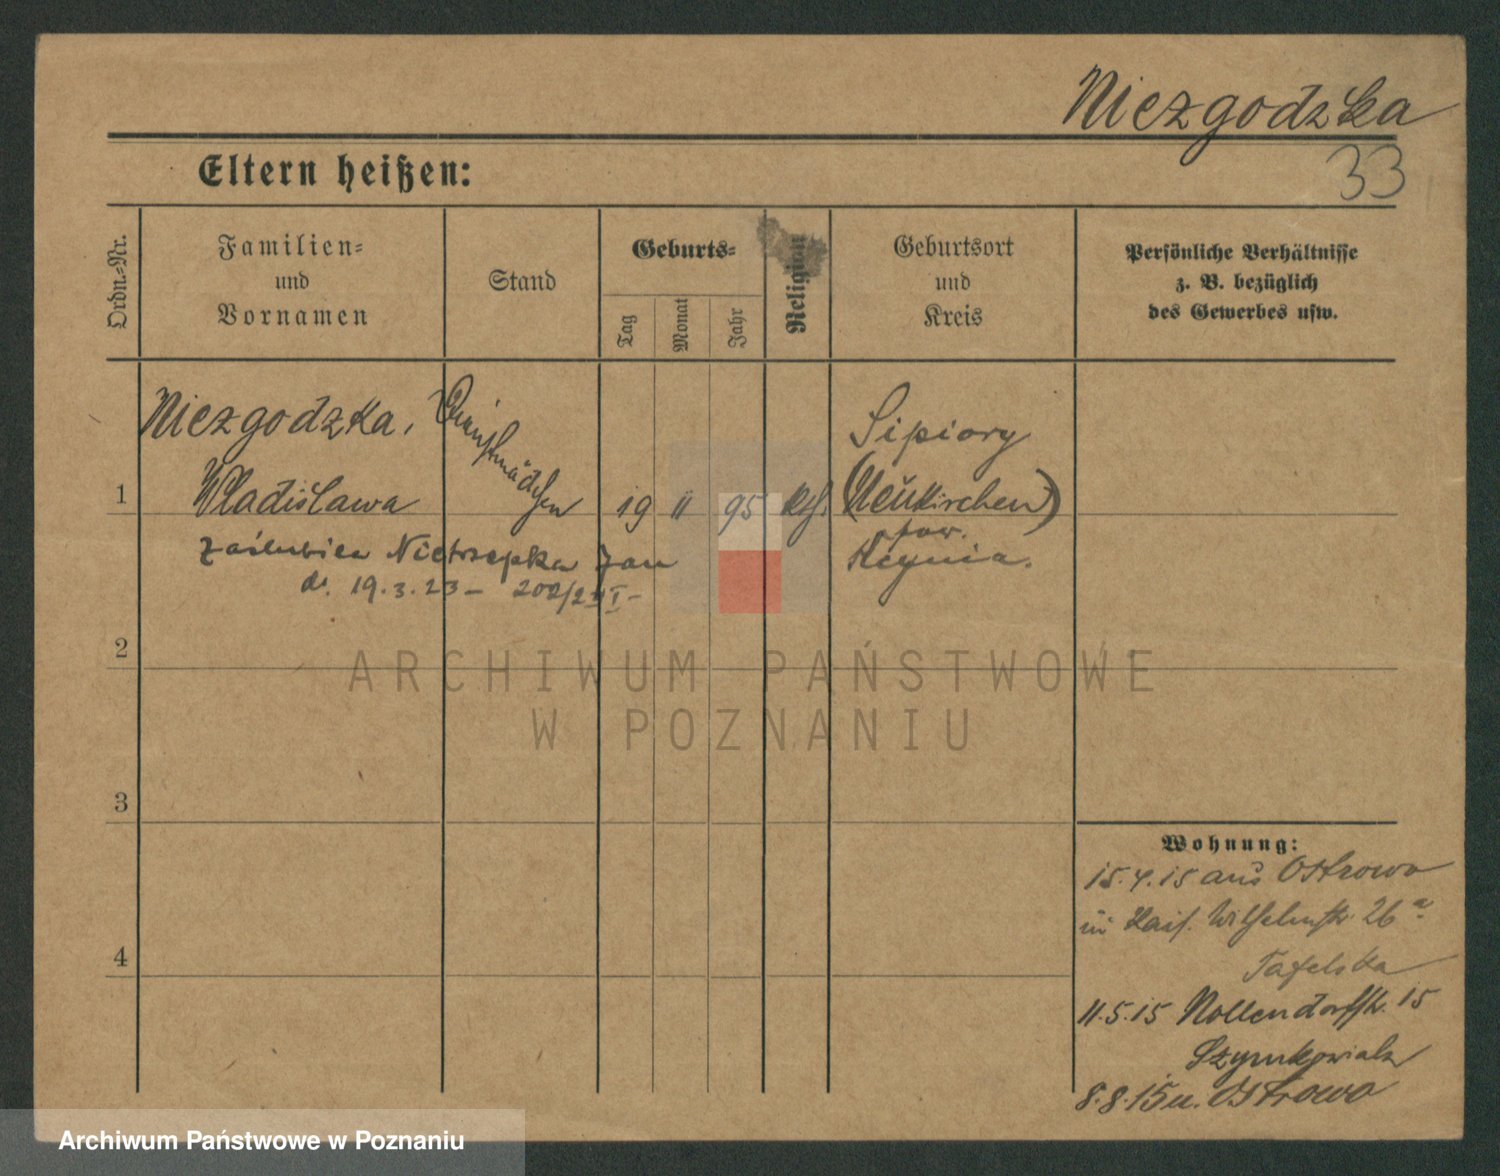 Niezgodzka
33
Eltern heißen:
Ordn.=Nr.
Familien=
und
Vornamen
Stand
Geburts=
Tag
Monat
Jahr
Religion
Geburtsort
und
Kreis
Persönliche Verhältnisse
z. B. bezüglich
des Gewerbes usw.
1
Niezgodzka,
Wladislawa
Dienstmädchen
19
11
95
kth.
Sipiory
(Neukirchen)
pow.
Kcynia.
zaślubiła Nietrzepka Jan
d. 19.3.23 –
2
ARCHIWUM PAŃSTWOWE
W POZNANIU
3
4
Wohnung:
15.4.15 aus Ostrowo
in Kais. Wilhelmstr. 26 a
Tafelska
11.5.15 Nollendorfstr. 15
Szymkowiak
8.8.15 n. Ostrowo
Archiwum Państwowe w Poznaniu